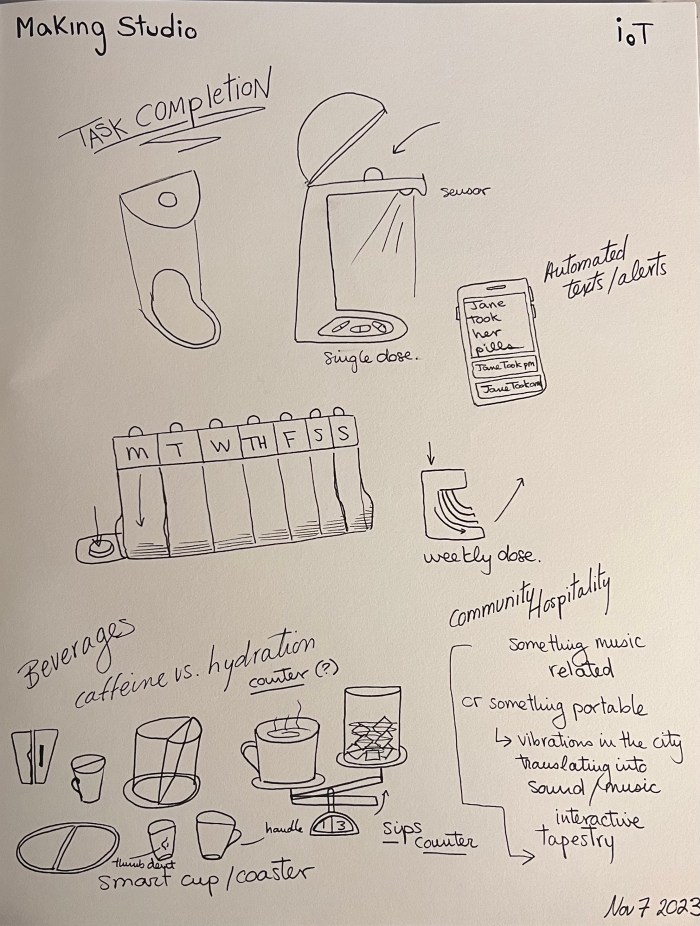 Making Studio
ioT
TASK COMpletioN
sensor
Automated
texts/alerts
Jane
took
her
pills
Jane Took pm
Jane Took am
single dose.
M T W TH F S S
weekly dose.
Community/Hospitality
something music
related
or something portable
↳ vibrations in the city
translating into
sound/music
interactive
tapestry
Beverages
caffeine vs. hydration
counter (?)
handle
13
sips
counter
thumb dent
smart cup/coaster
Nov 7 2023